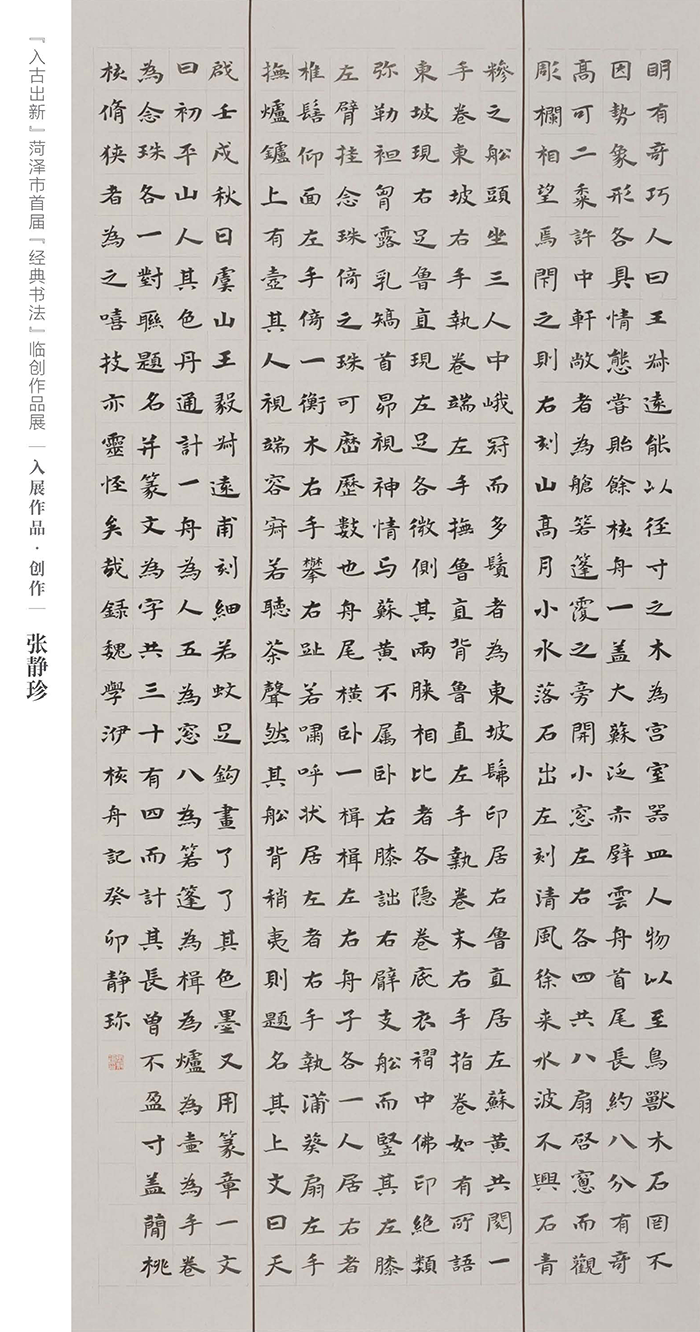 明有奇巧人曰王叔遠能以徑寸之木為宮室器皿人物以至鳥獸木石罔不
因勢象形各具情態嘗貽餘核舟一盖大蘇泛赤壁雲舟首尾長約八分有奇
高可二黍許中軒敞者為艙箬篷覆之旁開小窓左右各四共八扇启窻而觀
彫欄相望焉閉之則右刻山高月小水落石出左刻清風徐来水波不興石青
糝之舩頭坐三人中峨冠而多鬚者為東坡髴印居右魯直居左蘇黃共閱一
手卷東坡右手執卷端左手撫魯直背魯直左手執卷末右手指卷如有所語
東坡現右足魯直現左足各微側其兩膝相比者各隱卷底衣褶中佛印絕類
弥勒袒胷露乳矯首昂視神情与蘇黃不属卧右膝詘右臂支舩而竪其左膝
左臂挂念珠倚之珠可歷歷數也舟尾橫卧一楫楫左右舟子各一人居右者
椎髻仰面左手倚一衡木右手攀右趾若嘯呼状居左者右手執蒲葵扇左手
撫爐鑪上有壺其人視端容寂若聽茶聲然其舩背稍夷則題名其上文曰天
啟壬戌秋日虞山王毅叔遠甫刻細若蚊足鈎畫了了其色墨又用篆章一文
曰初平山人其色丹通計一舟為人五為窓八為箬篷為楫為爐為壺為手卷
為念珠各一對聮題名并篆文為字共三十有四而計其長曾不盈寸盖蕳桃
核脩狹者為之嘻技亦靈怪矣哉録魏學洢核舟記癸卯静珎
『入古出新』菏泽市首届『经典书法』临创作品展|入展作品·创作|张静珍